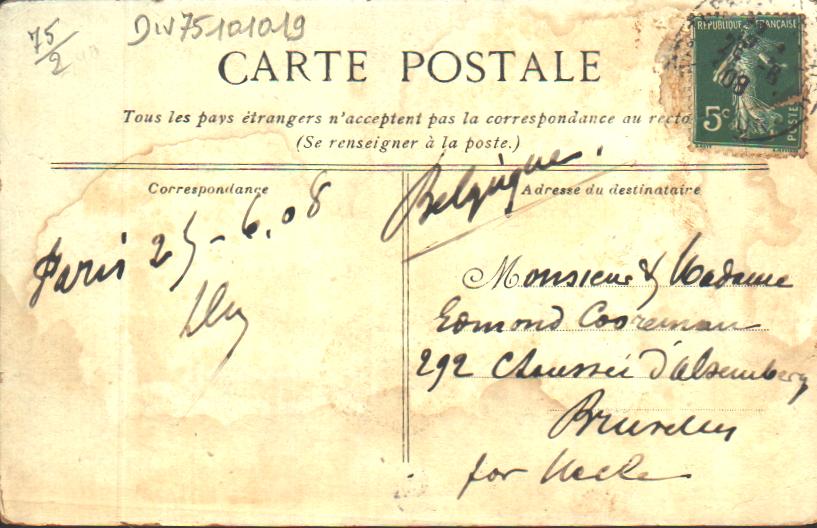 75/2
DIV75101019
CARTE POSTALE
RÉPUBLIQUE FRANÇAISE
5c
POSTES
08
Tous les pays étrangers n'acceptent pas la correspondance au recto
(Se renseigner à la poste.)
Correspondance
Adresse du destinataire
Belgique.
Paris 25-6.08
Monsieur & Madame
Edmond Cooreman
292 Chaussée d'Alsemberg
Bruxelles